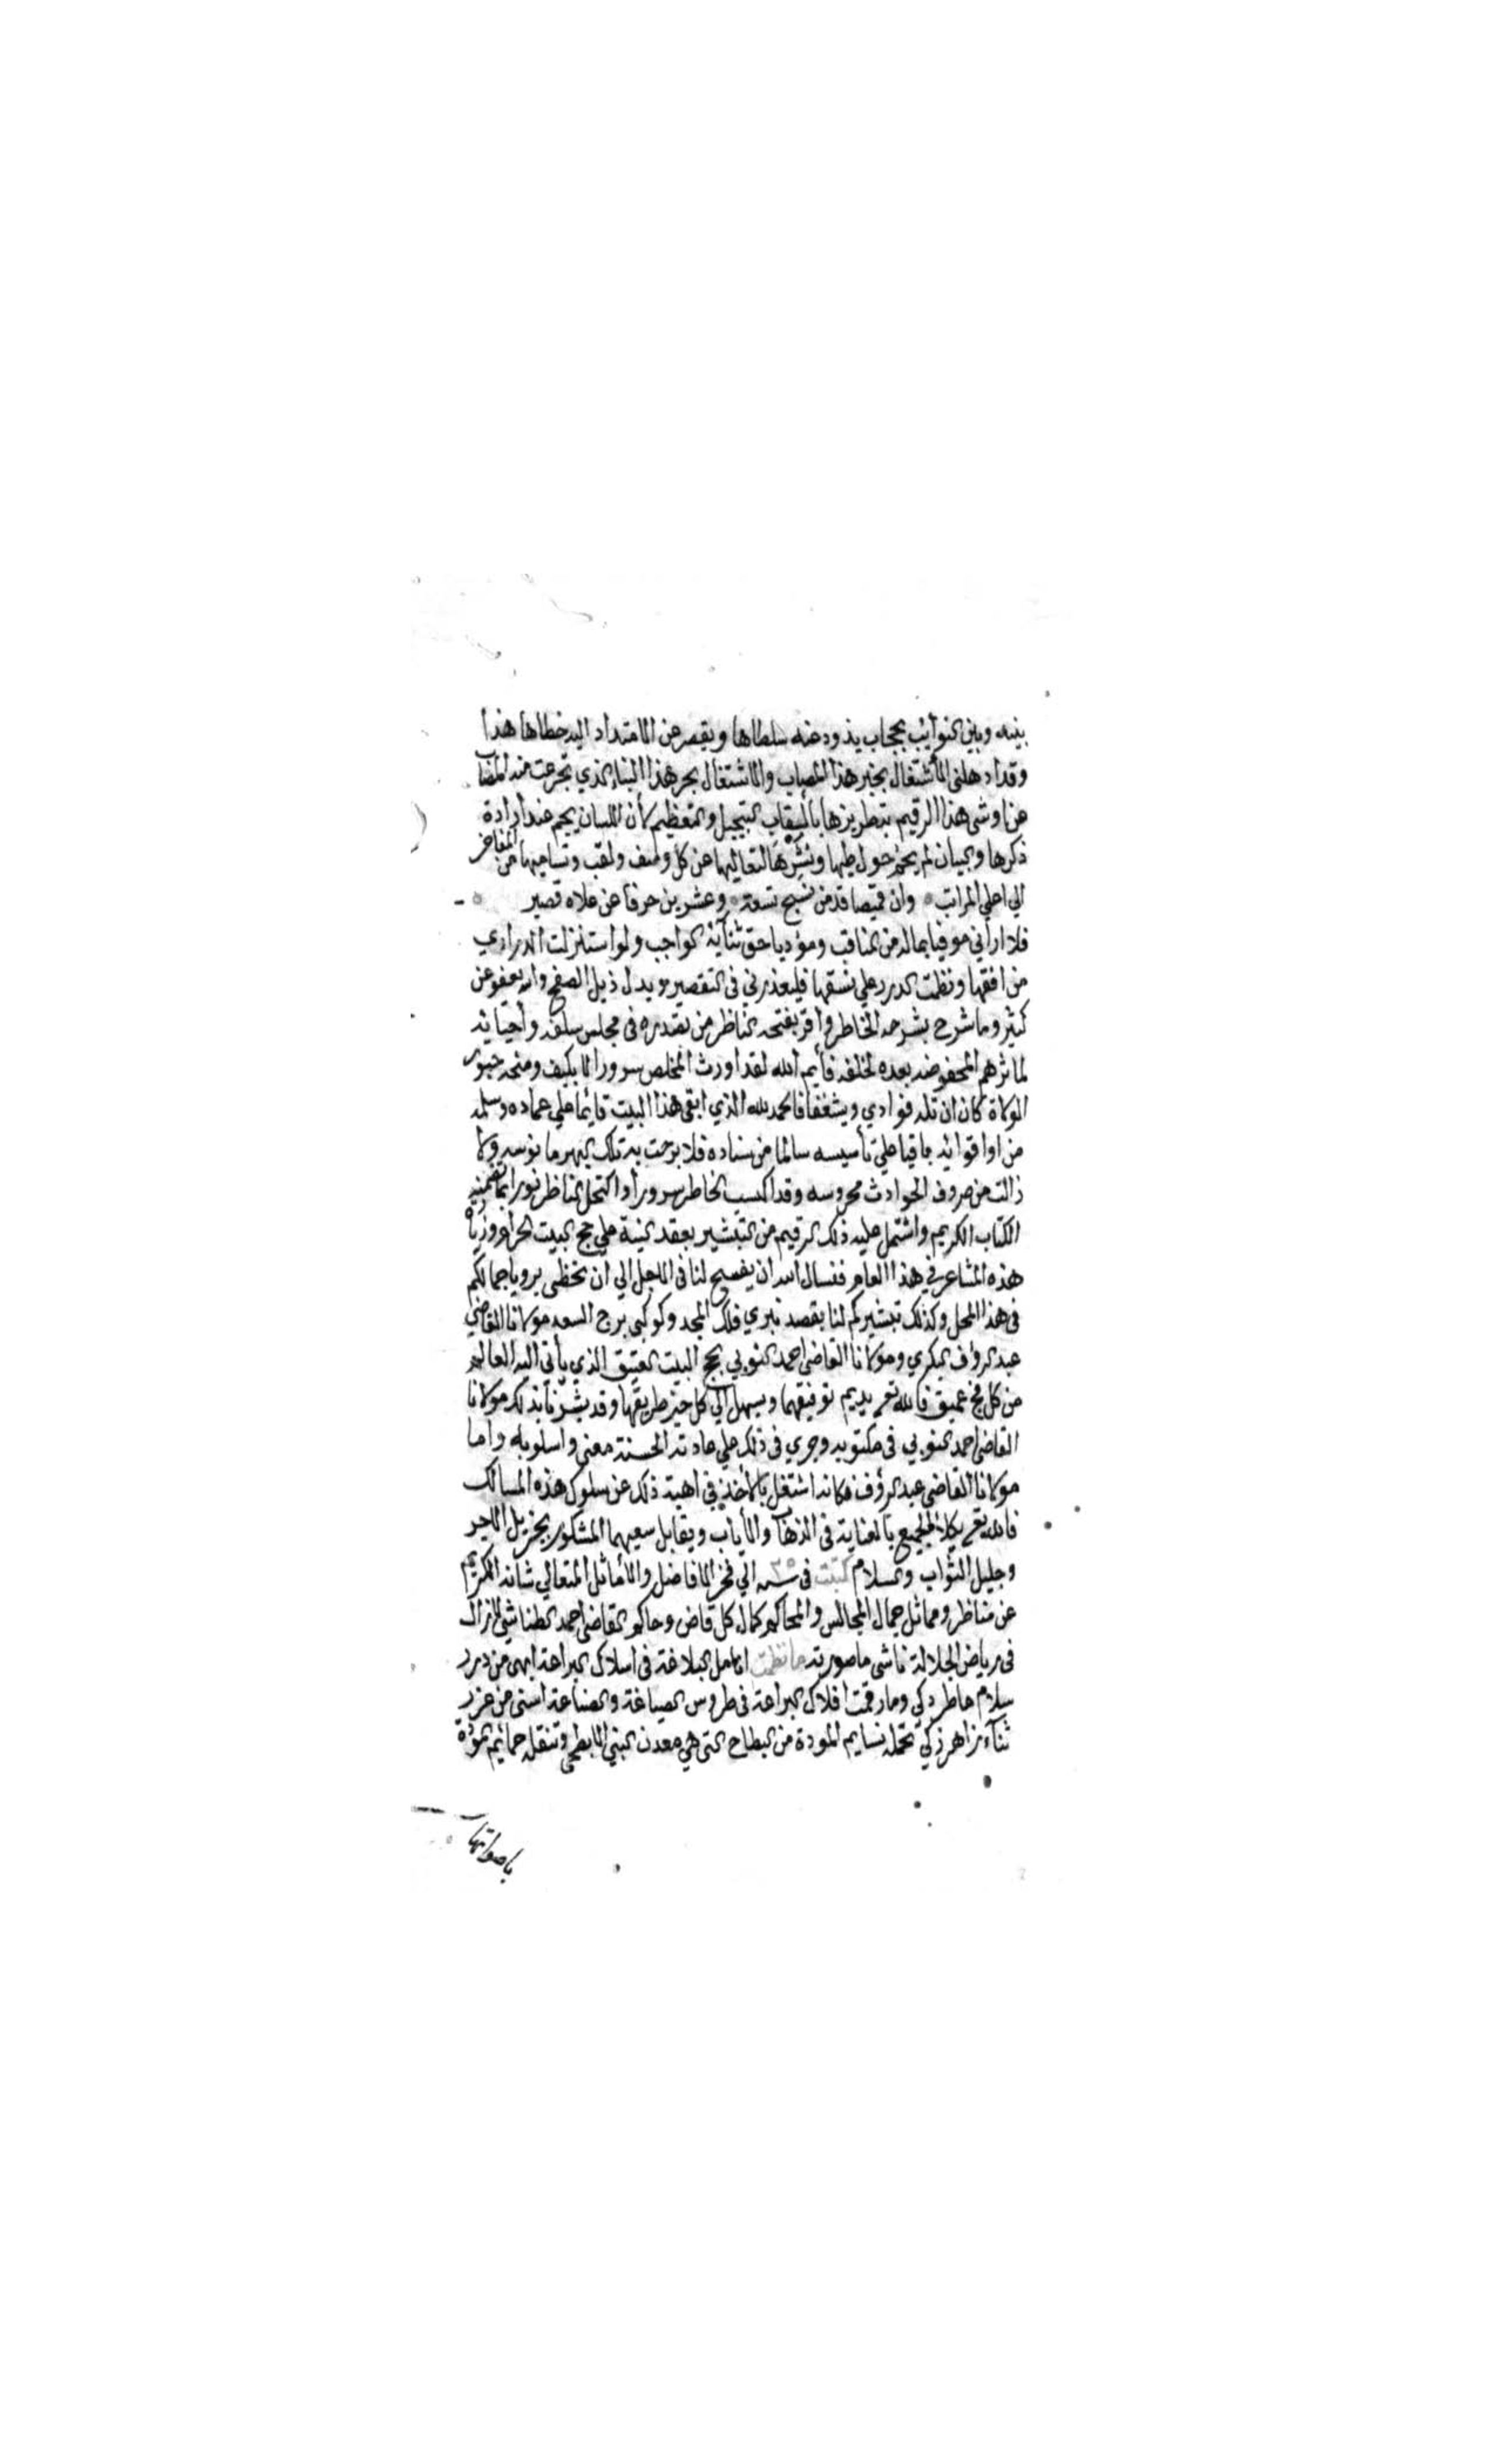 بينه وبين النوايب بحجاب يذود عنه سلطاها ويقصر عن الامتداد اليه خطاها هذا
وقد ادهلنى الأشتغال بخبر هذا المصاب والاشتغال بحر هذا النباء الذي تجرعت منه المصاب
عن اوشى هذا الرقيم بتطريزها بألقاب التبجيل والتعظيم لأن اللسان يحجم عند ارادة
ذكرها والبيان لم يحم حول طيها ونشرها لتعاليها عن كل وصف ولقب وتساميها من المفاخر
الي اعلي المراتب وان قميصا قد من نسج تسعة وعشرين حرفا عن علاه قصير
فلا اراني موفيا بماله من المناقب ومؤديا حق ثنآيه الواجب ولو استنزلت الدراري
من افقها ونظمت الدرر علي نسقها فليعذرني في التقصير ويدل ذيل الصفح والله يعفو عن
كثير وما شرح بشرحه الخاطر وأقر بفتحه الناظر من تصدره في مجلس سلفه وأحيائه
لمأثرهم المحفوضه بعده لخلفه فأيم الله لقد اورث المخلص سرورا لا يكيف ومنحه حبور
الولاة كان ان تله فوادي ويشغفا فالحمد لله الذي ابقى هذا البيت قايما علي عماده وسلمه
من اواقوائه باقيا علي تأسيسه سالما من سناده فلا برحت به تلك البهر مانوسه ولا
زالت من صروف الحوادث محروسه وقد اكسب الخاطر سرورا واكتحل الناظر نورا بما تضمنه
الكتاب الكريم واشتمل عليه ذلك الرقيم من التبشير بعقد النية علي حج البيت الحرام وزيارة
هذه المشاعر في هذا العام فنسال الله ان يفسح لنا في الاجل الي ان نحظى برويا جمالكم
في هذا المحل وكذلك تبشيركم لنا بقصد نيري فلك المجد وكوكبي برج السعد مولانا القاضي
عبد الرؤف البكري ومولانا القاضي احمد النوبي بحج البيت العتيق الذي يأتي اليه العالم
من كل فج عميق فالله تعم يديم توفيقهما ويسهل الي كل خير طريقها وقد بشرنا بذلك مولانا
القاضي احمد النوبي في مكتوبه وجري في ذلك علي عادته الحسنة معنى واسلوبه واما
مولانا القاضي عبد الرؤف فكانه اشتغل بالأخذ في اهبة ذلك عن سلوك هذه المسالك
فالله تعم يكلأ الجميع بالعناية في الذهاب والأياب ويقابل سعيهما المشكور بجزيل الاجر
وجليل الثواب والسلام كتبت في سنه ٣٥ الي فخر الافاضل والأماثل المتعالي شانه الكريم
عن مناظر ومماثل جمال المجالس والمحاكم كمال كل قاض وحاكم القاضي احمد الطناشي لازال
في رياض الجلالة ناشي ما صورته ما نظمت انامل البلاغة في اسلاك البراعة ابهى من درر
سلام عاطر ذكي وما رقمت اقلام البراعة في طروس الصياغة والصناعة اسنى من غرر
ثنآء زاهر زكي تحمله نسايم المودة من البطاح التي هي معدن النبي الابطحي وتنقله حمائم المودة
باصواتها